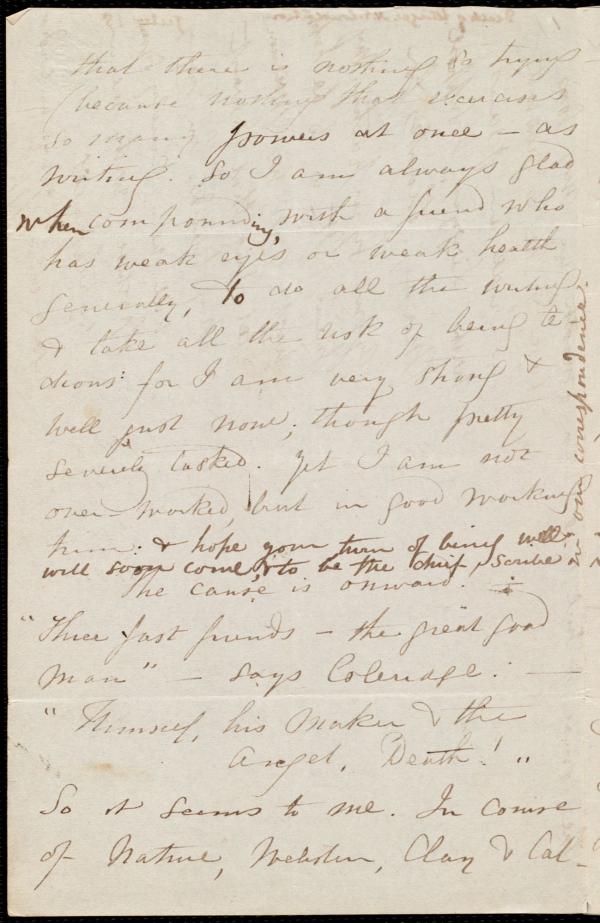 that there is nothing so trying -
(because nothing that exercises
so many powers at once - as
writing. So I am always glad
when compounding, with a friend who
has weak eyes or weak health
generally, to do all the writing
& take all the risk of being te-
dious: for I am very strong &
well just now; though pretty
severely tasked. Yet I am not
over-worked, but in good working
trim: & hope your turn of being well
will soon come, & to be the chief scribe
in our correspondence.
The cause is onward.
"Three fast friends - the great good
man" - says Coleridge: -
"Himself, his Maker & the
Angel, Death! "
So it seems to me. In course
of Nature, Webster, Clay & Cal-